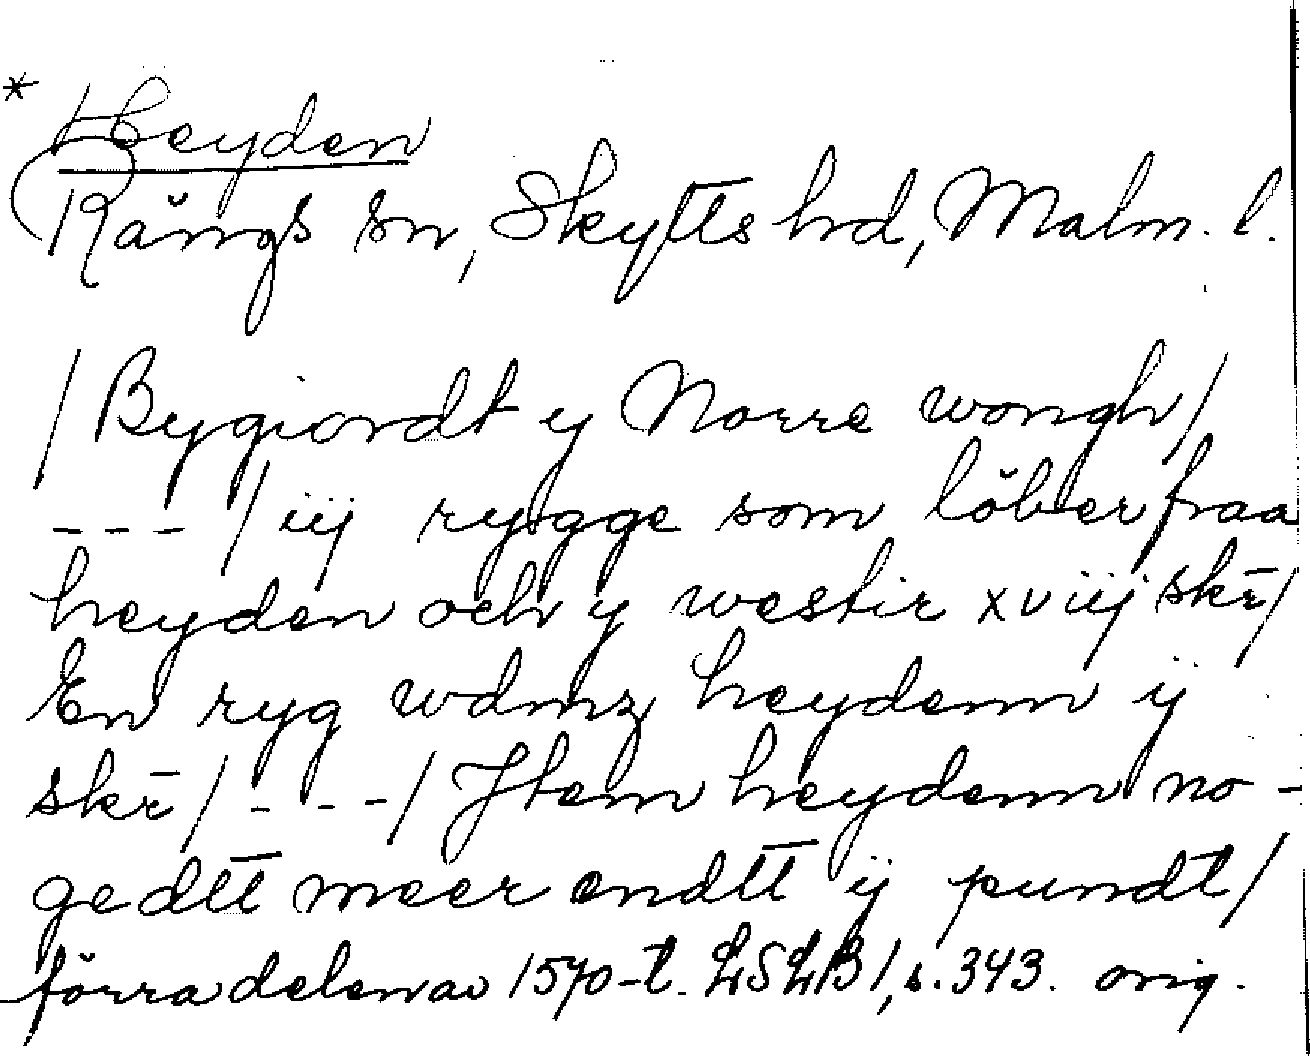 * Heyden
Rängs sn, Skytts hd, Malm. l.
/ Bygiordt y Norre wongh /
--- / iij rygge som löber fraa
heyden och y westir xviij skr̄ /
En ryg wdmz heydenn ij
skr̄ / --- / Jtem heydenn no-
gedtt meer endtt ij pundt /
förra delen av 1570-t. LSLB 1, s. 343. orig.